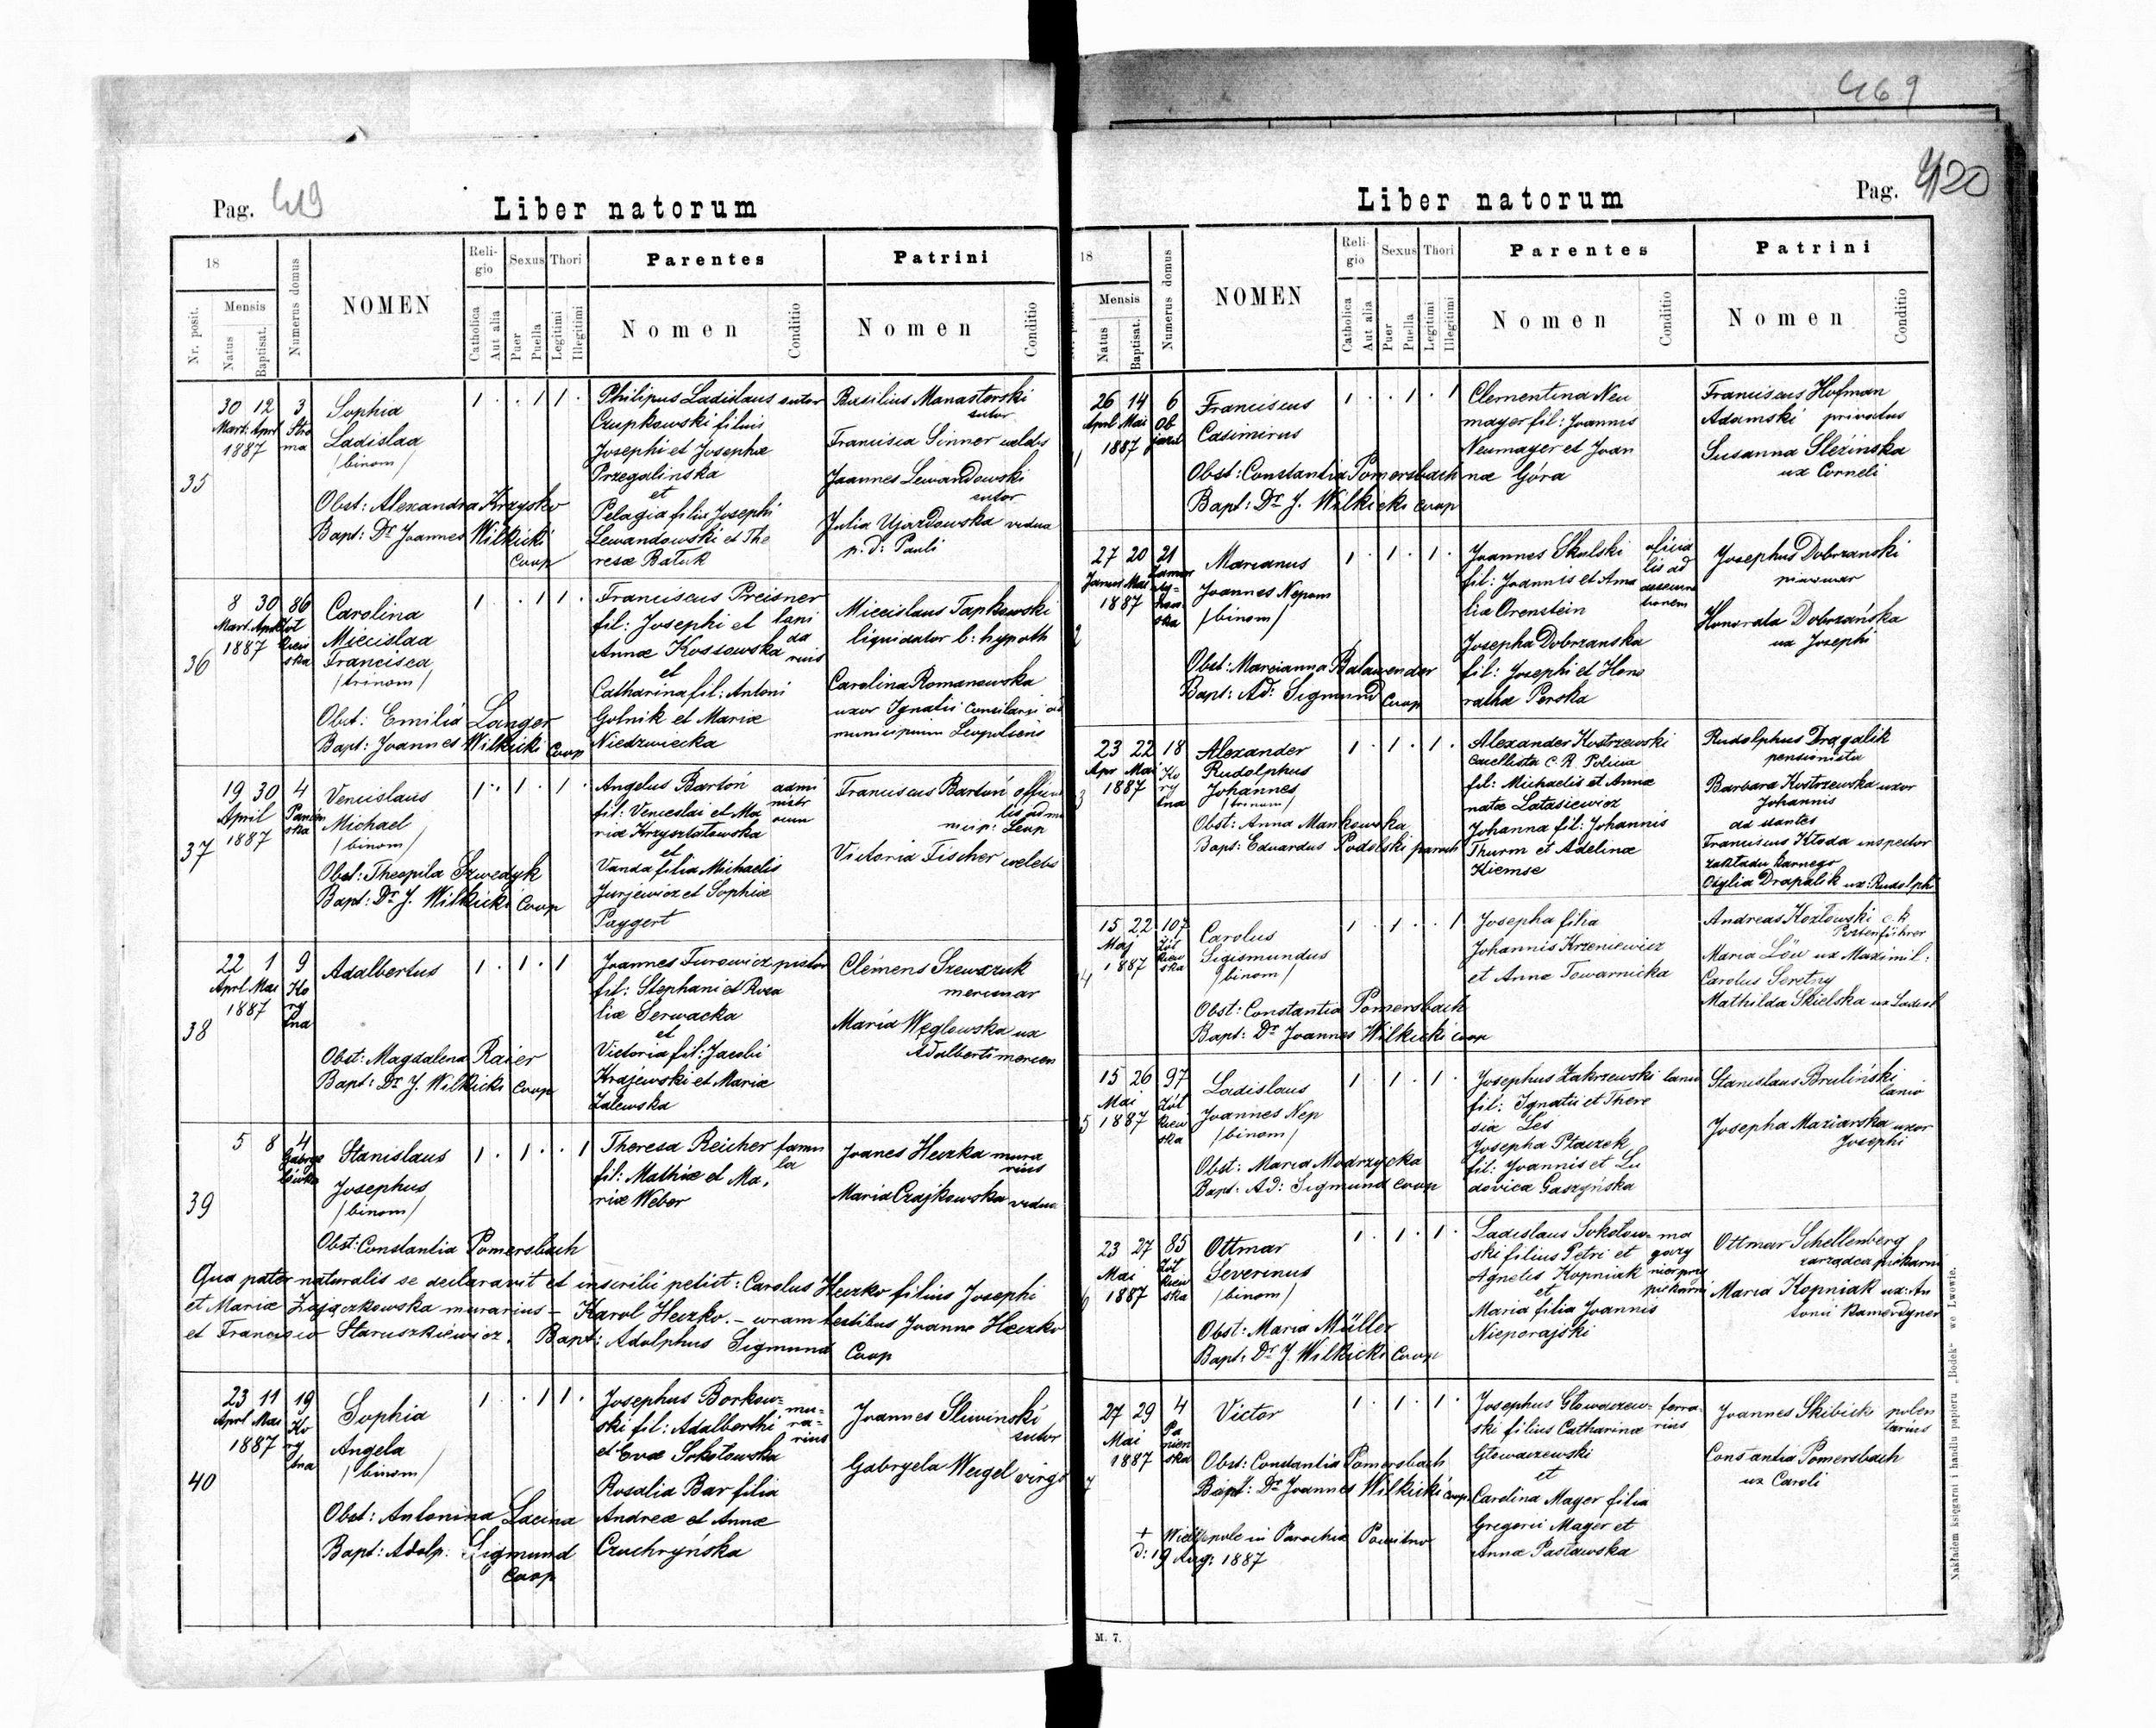 469
Pag. 419
Liber natorum
18
Nr. posit.
Mensis
Natus
Baptisat.
Numerus domus
NOMEN
Religio
Catholica
Aut alia
Sexus
Puer
Puella
Thori
Legitimi
Illegitimi
Parentes
Nomen
Conditio
Patrini
Nomen
Conditio
35
30 12 3
Mart: Aprl
1887
Sophia
Ladislaa
/binom/
Obst: Alexandra Krzysko
Bapt: Dr Joannes Wilkicki
Coop
1 . . 1 1 .
Philipus Ladislaus sutor
Czupkowski filius
Josephi et Josephæ
Przegalinska
et
Pelagia filia Josephi
Lewandowski et The
resæ Batuk
Basilius Manastorski
sutor
Francisca Sinner
Joannes Lewandowski
sutor
Julia Ujazdowska vidua
p. d: Pauli
36
8 30 86
Mart. Aprl
1887
Carolina
Miecislaa
Francisca
/trinom/
Obst: Emilia Langer
Bapt: Joannes Wilkicki Coop
1 . . 1 1 .
Franciscus Preisner
fil: Josephi et lapi
Annæ Kossowska da
rius
et
Catharina fil: Antoni
Golnik et Mariæ
Niedzwiecka
Miecislaus Tapkowski
liquidator b: hypoth
Carolina Romanowska
uxor Ignatii Consilarii
municipium Leopoliens
37
19 30 4
April
1887
Venceslaus
Michael
/binom/
Obst: Theopila Szwedyk
Bapt: Dr J. Wilkicki Coop
1 . 1 . 1 .
Angelus Bartoń
fil: Venceslai et Ma
riæ Krzysztalowska
et
Vanda filia Michaelis
Jurjewicz et Sophiæ
Paygert
Franciscus Bartoń
Victoria Fischer
38
22 1 9
Aprl Mai
1887
Ko
ry
tna
Adalbertus
Obst: Magdalena Raier
Bapt: Dr J. Wilkicki Coop
1 . 1 . 1
Joannes Turowicz pistor
fil: Stephani et Rosa
liæ Serwacka
et
Victoria fil: Jacobi
Krajewski et Mariæ
Zalewska
Clemens Szewczuk
mercenar
Maria Węglowska ux
Adalberti mercen
39
5 8 4
Stanislaus
Josephus
/binom/
Obst: Constantia Pomersbach
1 . 1 . . 1
Theresa Reicher famu
la
fil: Mathiæ et Ma,
riæ Weber
Joanes Heczka mura
rius
Maria Czajkowska vidua
Qua pater naturalis se declaravit et inscribi petiit: Carolus Heczko filius Josephi
et Mariæ Zajączkowska murarius – Karol Heczko. – coram testibus Joanne Heczko
et Francisco Staruszkiewicz. Bapt: Adolphus Sigmund Coop
40
23 11 19
Aprl Mai
1887
Ko
ry
tna
Sophia
Angela
/binom/
Obst: Antonina Lacina
Bapt: Adolp: Sigmund
Coop
1 . . 1 1 .
Josephus Borkow= mu=
ski fil: Adalberthi ra=
et Evæ Sokołowska rius
Rosalia Bar filia
Andreæ et Annæ
Czuchryńska
Joannes Sliwinski
sutor
Gabryela Weigel virgo
Liber natorum
Pag. 420
18
Mensis
Natus
Baptisat.
Numerus domus
NOMEN
Religio
Catholica
Aut alia
Sexus
Puer
Puella
Thori
Legitimi
Illegitimi
Parentes
Nomen
Conditio
Patrini
Nomen
Conditio
1
26 14 6
Aprl Mai
1887
Franciscus
Casimirus
Obst: Constantia Pomersbach
Bapt: Dr. J. Wilkicki Coop
1 . . 1 . 1
Clementina Neu
mayer fil: Joannis
Neumayer et Joan
næ Góra
Franciscus Hofman
Adamski privatus
Susanna Sleżinska
ux Corneli
2
27 20 21
Mai
1887
Marianus
Joannes Nepom
/binom/
Obst: Marcianna Balawender
Bapt: Ad: Sigmund Coop
1 . 1 . 1 .
Joannes Skulski
fil: Joannis et Ama
lia Orenstein
Josepha Dobrzanska
fil: Josephi et Hono
rathæ Perska
Josephus Dobrzanski
Honorata Dobrzańska
ux Josephi
3
23 22 18
Apr Mai
1887
Ko
ry
tna
Alexander
Rudolphus
Johannes
/trinom/
Obst: Anna Mankowska
Bapt: Eduardus Podolski paroch
1 . 1 . 1 .
Alexander Kostrzewski
fil: Michaelis et Annæ
natæ Latasiewicz
Johanna fil: Johannis
Thurm et Adelinæ
Kiemse
Rudolphus Drapalik
pensionista
Barbara Kostrzewska uxor
Johannis
ad stantes
Franciscus Kłoda inspector
zakładu karnego
Otylia Drapalik ux: Rudolphi
4
15 22 107
Maj
1887
Żół
kiew
ska
Carolus
Sigismundus
/binom/
Obst: Constantia Pomersbach
Bapt: Dr Joannes Wilkicki Coop
1 . 1 . . 1
Josepha filia
Johannis Krzeniewicz
et Anna Towarnicka
Andreas Kozłowski c.k
Postenführer
Maria Löw ux Maximil:
Carolus Seretny
Mathilda Skielska ux Ladisl
5
15 26 97
Mai
1887
Żół
kiew
ska
Ladislaus
Joannes Nep
/binom/
Obst: Maria Modrzycka
Bapt: Ad: Sigmund Coop
1 . 1 . 1 .
Josephus Zakrzewski lanio
fil: Ignatii et There
siæ Les
Josepha Ptaszek
fil: Joannis et Lu
dovica Gaszyńska
Stanislaus Bruliński
lanio
Josepha Maziarska uxor
Josephi
6
23 27 85
Mai
1887
Żół
kiew
ska
Ottmar
Severinus
/binom/
Obst: Maria Müller
Bapt: Dr J. Wilkicki Coop
1 . 1 . 1 .
Ladislaus Sokołow= ma
ski filius Petri et gazy
Agnetis Kopniak nier przy
et piekarni
Maria filia Joannis
Nieporajski
Ottmar Schellenberg
zarządca piekarni
Maria Kopniak ux: An
tonii Kamerdyner
7
27 29 4
Mai
1887
Pa
nien
ska
Victor
Obst: Constantia Pomersbach
Bapt: Dr Joannes Wilkicki Coop
1 . 1 . 1 .
Josephus Głowaczew= ferra=
ski filius Catharinæ rius
Głowaczewski
et
Carolina Mager filia
Gregorii Mager et
Anna Pasławska
Joannes Skibicki
Constantia Pomersbach
ux Caroli
+ in Parochia
d: 19 Aug: 1887
M. 7.
Nakładem księgarni i handlu papieru „Bodek“ we Lwowie.